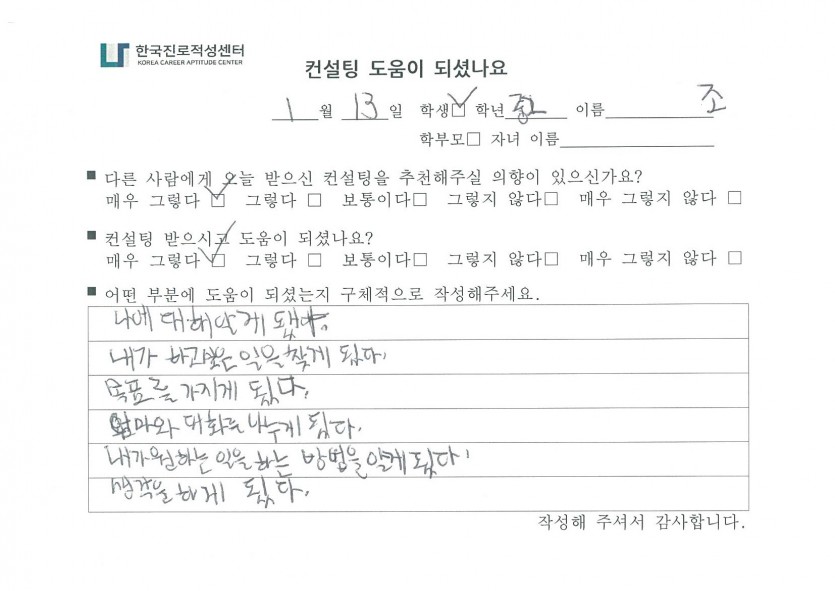 한국진로적성센터
KOREA CAREER APTITUDE CENTER
컨설팅 도움이 되셨나요
1월 13일 학생☑ 학년 중2 이름 조
학부모□ 자녀 이름
■ 다른 사람에게 오늘 받으신 컨설팅을 추천해주실 의향이 있으신가요?
매우 그렇다 ☑ 그렇다 □ 보통이다□ 그렇지 않다□ 매우 그렇지 않다 □
■ 컨설팅 받으시고 도움이 되셨나요?
매우 그렇다 ☑ 그렇다 □ 보통이다□ 그렇지 않다□ 매우 그렇지 않다 □
■ 어떤 부분에 도움이 되셨는지 구체적으로 작성해주세요.
나에 대해 알게 됐다.
내가 하고싶은 일을 찾게 됬다.
목표를 가지게 됬다.
엄마와 대화를 나누게 됬다.
내가 원하는 일을 하는 방법을 알게 됬다.
생각을 하게 됬다.
작성해 주셔서 감사합니다.